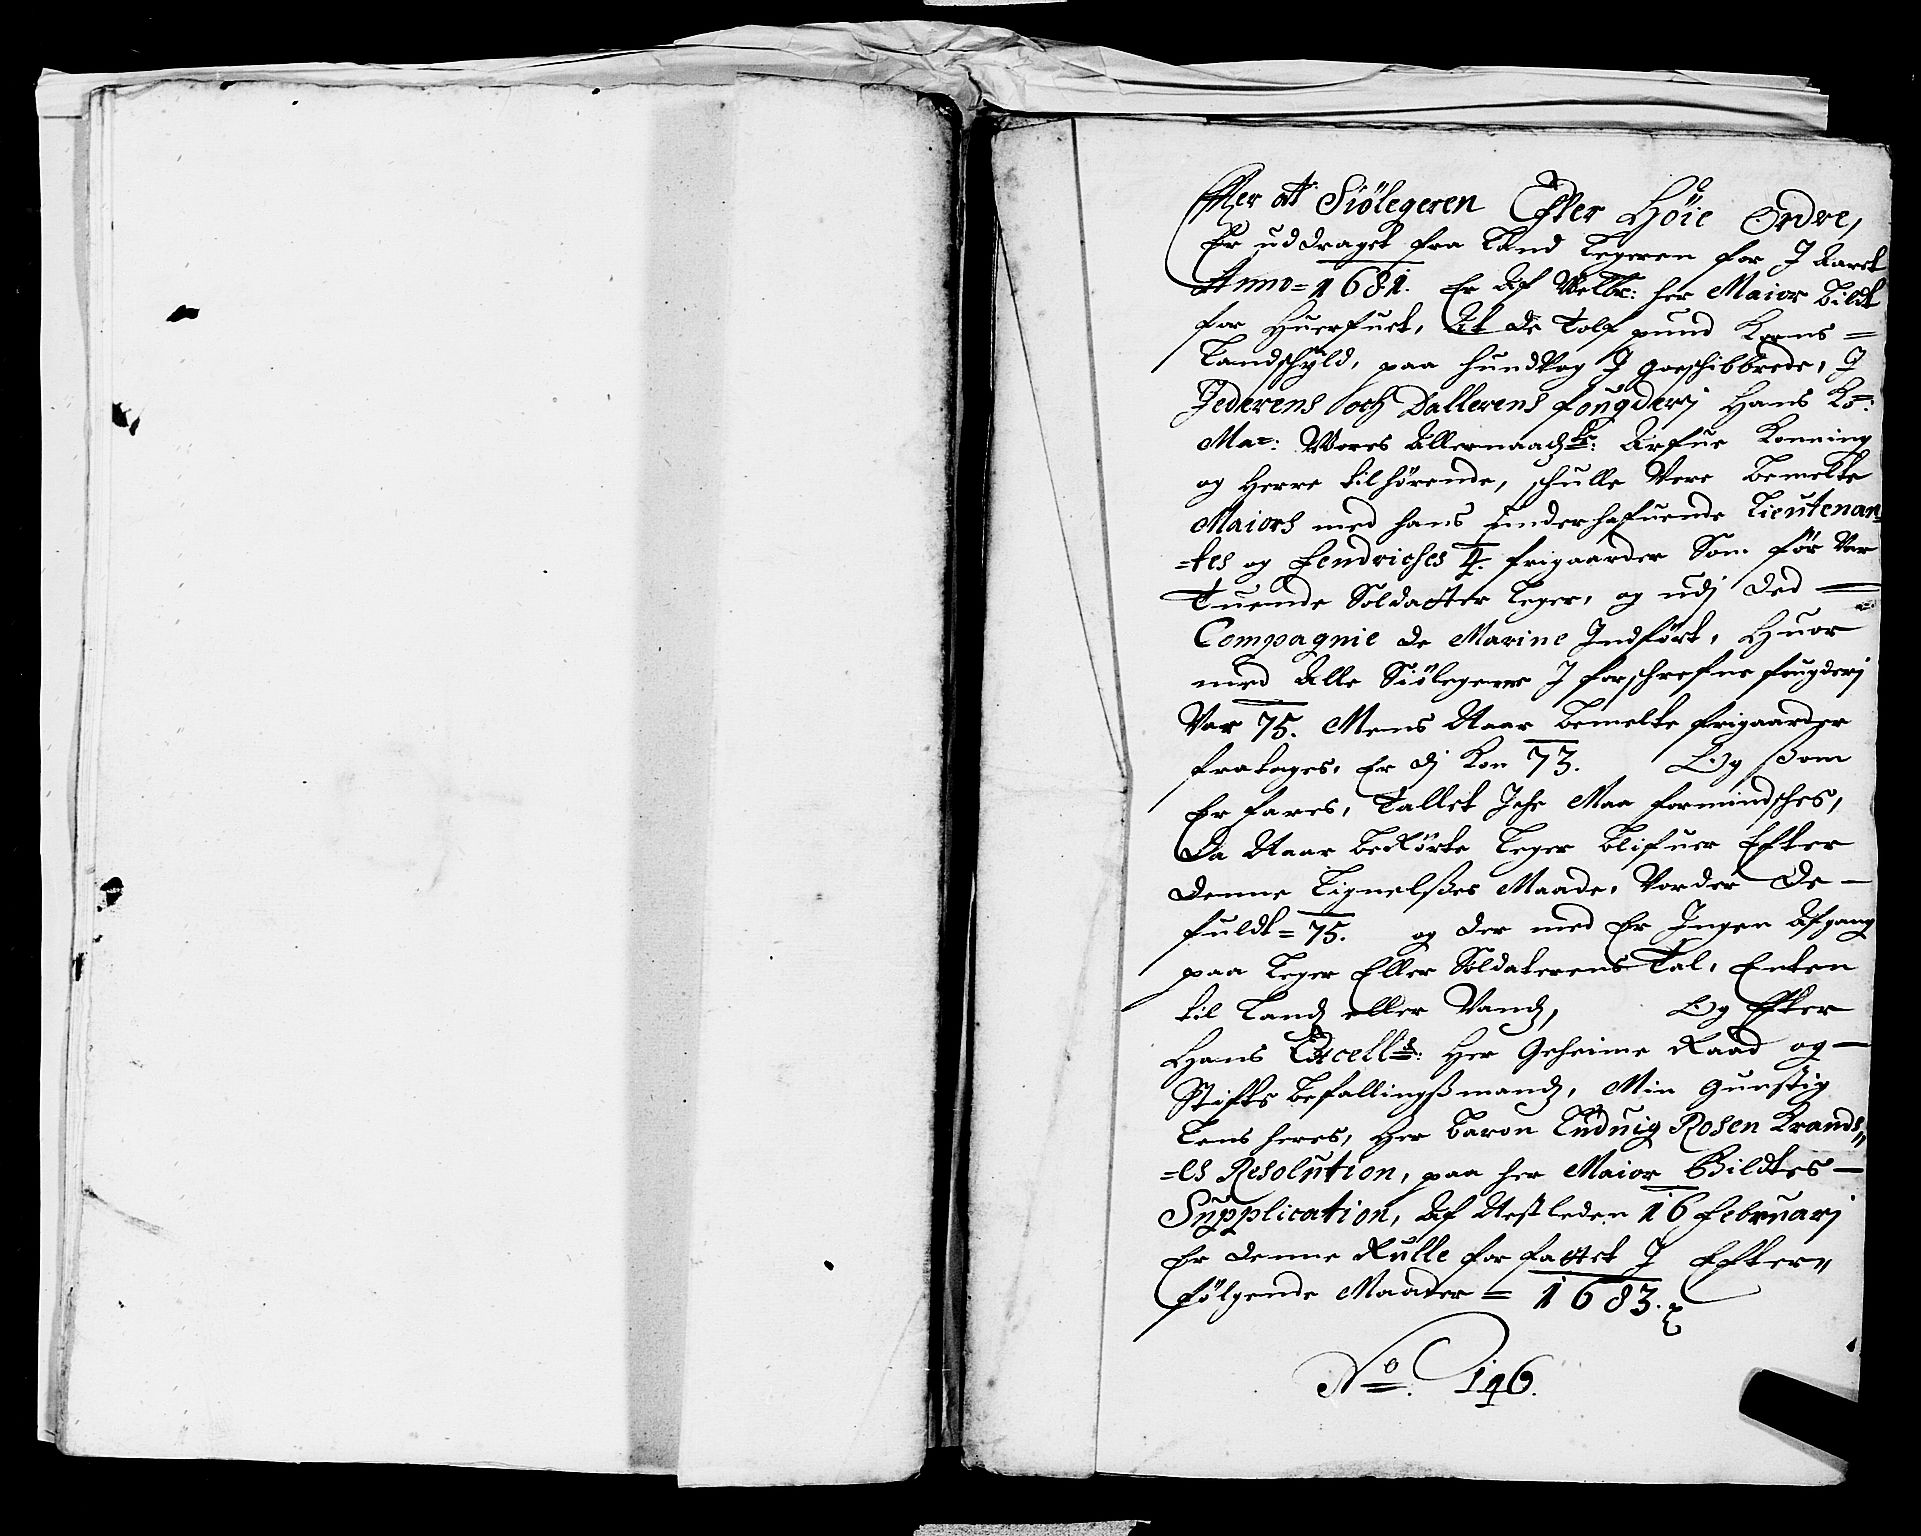 Efter at Siölegeren Efter Höie Ordre,
Er uddraget fra Land Legeren for J Aaret
Anno = 1681. Er Af Welbr: her Maior Bildt
for huerfuet, At de Tolf pund Korns =
Landschyld, paa hundvog J gaeschibbrede, J
Jederens och Dallerens fougderj Hans Ko:
Ma: Vores Allernaadste: Arfue Konning
og Herre tilhørende, schulle Vere bemelte
Maiors med hans underhafuende Lieutenan
=tes og Fendriches 4. frigaarder Som før Var
Tuende Soldatter Leger, og udj Ded
Compagnie de Marine Indført, Huor
med Alle Siölegerne J forschrefne fougderj
Var 75. Mens Naar bemelte frigaarder
fratages, Er dj Kon 73. Og ßom
Erfares, Tallet Iche Maa formindsches,
Da Naar berörte Leger blifuer Efter
denne Lignelßes Maade, Vorder de
fuldt = 75. og der med Er Ingen Afgang
paa Leger Eller Soldaterens Tal, Enten
til Landz eller Vandz, Og Efter
Hans Excell: Her Geheime Raad og
Stifts befallingßmandz, Min gunstig
Lens heres, Her Baron Ludvig Rosen Krands,,
=es Resolution, paa her Maior Bildtes
Supplication, Af Nestleden 16 Februarj
Er denne Rulle forfattet J Efter,,
følgende Maader = 1683.
No. 146.